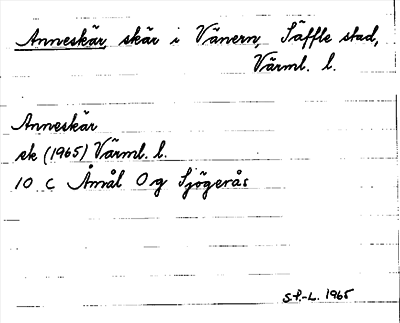 Anneskär, skär i Vänern, Säffle stad,
Värml. l.
Anneskär
sk (1965) Värml. l.
10 C Åmål Og Sjögerås
S.P.-L. 1965